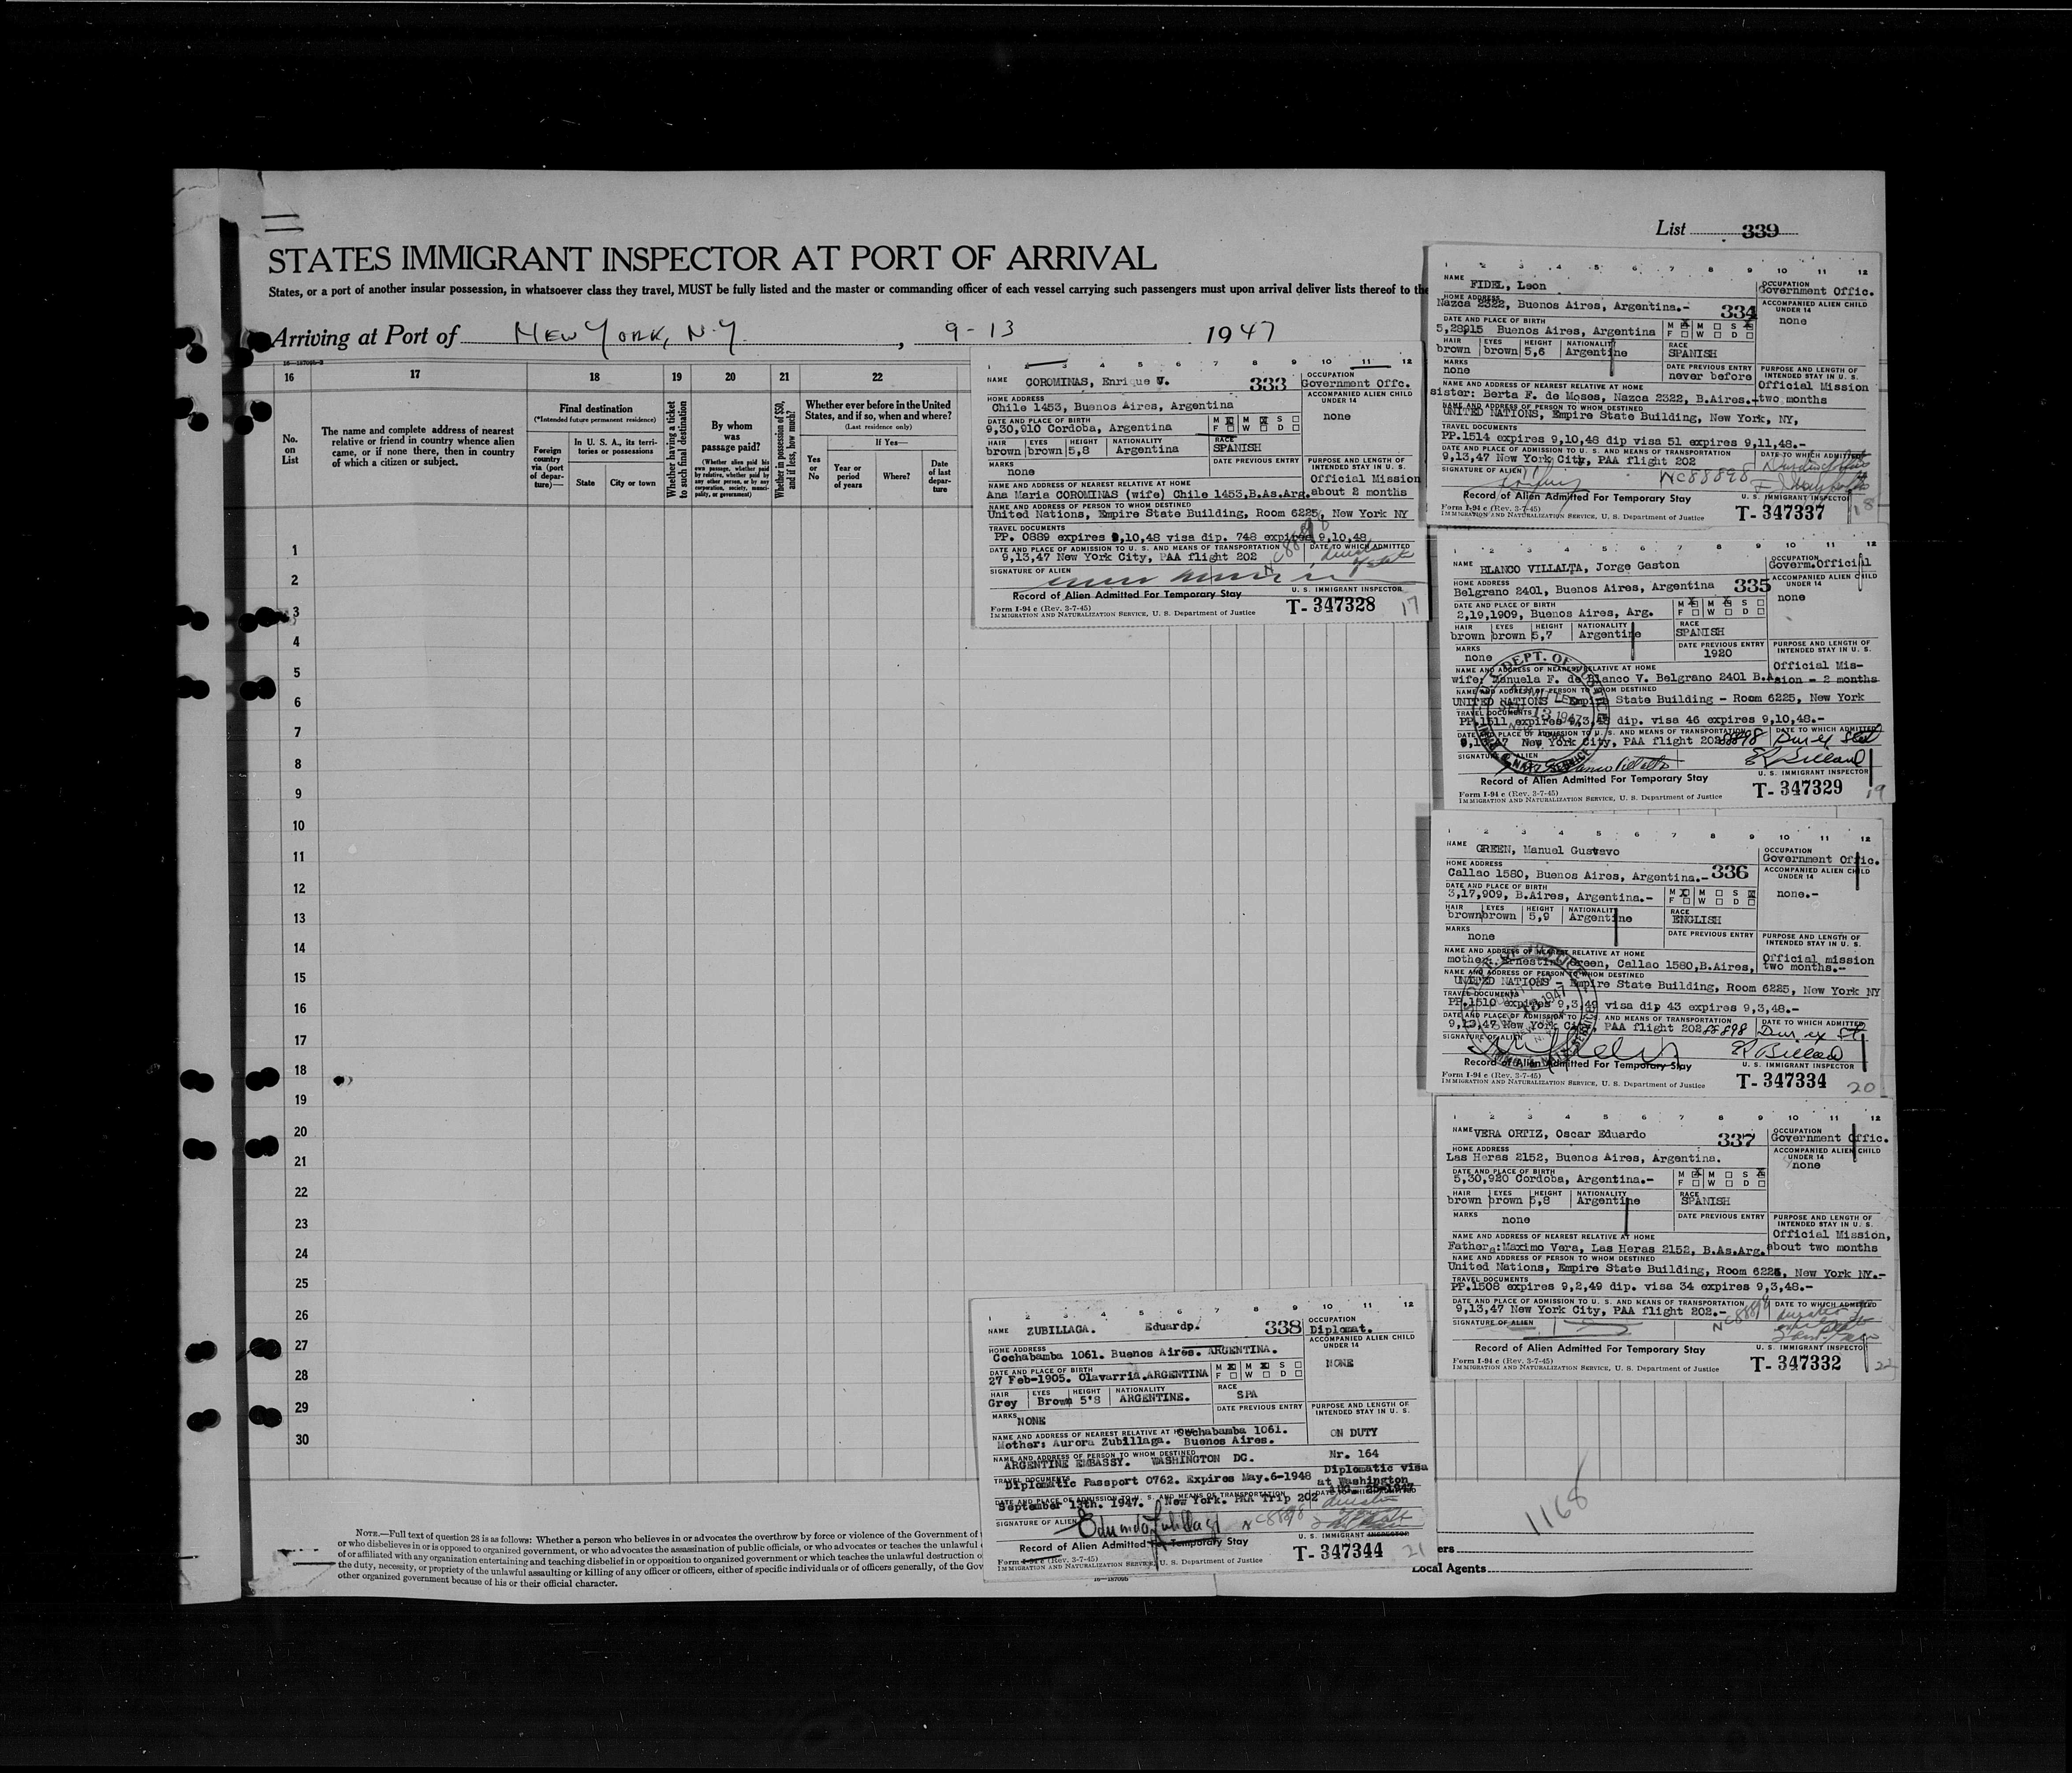 List 339
STATES IMMIGRANT INSPECTOR AT PORT OF ARRIVAL
States, or a port of another insular possession, in whatsoever class they travel, MUST be fully listed and the master or commanding officer of each vessel carrying such passengers must upon arrival deliver lists thereof to the
Arriving at Port of NEW YORK, N.Y. , 9-13 1947
16 17 18 19 20 21 22
No. on List
The name and complete address of nearest relative or friend in country whence alien came, or if none there, then in country of which a citizen or subject.
Final destination
(*Intended future permanent residence)
Foreign country via (port of departure)—
In U. S. A., its territories or possessions
State
City or town
Whether having a ticket to such final destination
By whom was passage paid?
(Whether alien paid his own passage, whether paid by relative, whether paid by any other person, or by any corporation, society, municipality, or government)
Whether in possession of $50, and if less, how much?
Whether ever before in the United States, and if so, when and where?
(Last residence only)
Yes or No
If Yes—
Year or period of years
Where?
Date of last departure
1
2
3
4
5
6
7
8
9
10
11
12
13
14
15
16
17
18
19
20
21
22
23
24
25
26
27
28
29
30
1 2 3 4 5 6 7 8 9 10 11 12
NAME COROMINAS, Enrique V. 333
OCCUPATION Government Offc.
HOME ADDRESS
Chile 1453, Buenos Aires, Argentina
ACCOMPANIED ALIEN CHILD UNDER 14
none
DATE AND PLACE OF BIRTH
9,30,910 Cordoba, Argentina
M M S
F W D
HAIR EYES HEIGHT NATIONALITY RACE
brown brown 5,8 Argentina SPANISH
MARKS none
DATE PREVIOUS ENTRY
PURPOSE AND LENGTH OF INTENDED STAY IN U. S.
Official Mission
about 2 months
NAME AND ADDRESS OF NEAREST RELATIVE AT HOME
Ana Maria COROMINAS (wife) Chile 1453,B.As.Arg.
NAME AND ADDRESS OF PERSON TO WHOM DESTINED
United Nations, Empire State Building, Room 6225, New York NY
TRAVEL DOCUMENTS
PP. 0889 expires 9,10,48 visa dip. 748 expires 9,10,48
DATE AND PLACE OF ADMISSION TO U. S. AND MEANS OF TRANSPORTATION
DATE TO WHICH ADMITTED
9,13,47 New York City, PAA flight 202
SIGNATURE OF ALIEN
Record of Alien Admitted For Temporary Stay
U. S. IMMIGRANT INSPECTOR
Form I-94 c (Rev. 3-7-45)
IMMIGRATION AND NATURALIZATION SERVICE, U. S. Department of Justice
T- 347328 17
1 2 3 4 5 6 7 8 9 10 11 12
NAME FIDEL, Leon
OCCUPATION Government Offic.
HOME ADDRESS
Nazca 2322, Buenos Aires, Argentina.- 334
ACCOMPANIED ALIEN CHILD UNDER 14
none
DATE AND PLACE OF BIRTH
5,28915 Buenos Aires, Argentina
M M S
F W D
HAIR EYES HEIGHT NATIONALITY RACE
brown brown 5,6 Argentine SPANISH
MARKS
none
DATE PREVIOUS ENTRY
never before
PURPOSE AND LENGTH OF INTENDED STAY IN U. S.
Official Mission
two months
NAME AND ADDRESS OF NEAREST RELATIVE AT HOME
sister: Berta F. de Moses, Nazca 2322, B.Aires.-
NAME AND ADDRESS OF PERSON TO WHOM DESTINED
UNITED NATIONS, Empire State Building, New York, NY,
TRAVEL DOCUMENTS
PP.1514 expires 9,10,48 dip visa 51 expires 9,11,48.-
DATE AND PLACE OF ADMISSION TO U. S. AND MEANS OF TRANSPORTATION
DATE TO WHICH ADMITTED
9,13,47 New York City, PAA flight 202
SIGNATURE OF ALIEN
NC88898
Record of Alien Admitted For Temporary Stay
U. S. IMMIGRANT INSPECTOR
Form I-94 c (Rev. 3-7-45)
IMMIGRATION AND NATURALIZATION SERVICE, U. S. Department of Justice
T- 347337 18
1 2 3 4 5 6 7 8 9 10 11 12
NAME BLANCO VILLALTA, Jorge Gaston
OCCUPATION Goverm.Official
HOME ADDRESS
Belgrano 2401, Buenos Aires, Argentina 335
ACCOMPANIED ALIEN CHILD UNDER 14
none
DATE AND PLACE OF BIRTH
2,19,1909, Buenos Aires, Arg.
M M S
F W D
HAIR EYES HEIGHT NATIONALITY RACE
brown brown 5,7 Argentine SPANISH
MARKS
none
DATE PREVIOUS ENTRY
1920
PURPOSE AND LENGTH OF INTENDED STAY IN U. S.
Official Mission - 2 months
NAME AND ADDRESS OF NEAREST RELATIVE AT HOME
wife: Manuela F. de Blanco V. Belgrano 2401 B.A.
NAME AND ADDRESS OF PERSON TO WHOM DESTINED
UNITED NATIONS Empire State Building - Room 6225, New York
TRAVEL DOCUMENTS
PP.1511 expires 9,3,48 dip. visa 46 expires 9,10,48.-
DATE AND PLACE OF ADMISSION TO U. S. AND MEANS OF TRANSPORTATION
DATE TO WHICH ADMITTED
New York City, PAA flight 202 88898
SIGNATURE OF ALIEN
Record of Alien Admitted For Temporary Stay
U. S. IMMIGRANT INSPECTOR
Form I-94 c (Rev. 3-7-45)
IMMIGRATION AND NATURALIZATION SERVICE, U. S. Department of Justice
T- 347329 19
1 2 3 4 5 6 7 8 9 10 11 12
NAME GREEN, Manuel Gustavo
OCCUPATION Government Offic.
HOME ADDRESS
Callao 1580, Buenos Aires, Argentina.- 336
ACCOMPANIED ALIEN CHILD UNDER 14
none.-
DATE AND PLACE OF BIRTH
3,17,909, B.Aires, Argentina.-
M M S
F W D
HAIR EYES HEIGHT NATIONALITY RACE
brown brown 5,9 Argentine ENGLISH
MARKS
none
DATE PREVIOUS ENTRY
PURPOSE AND LENGTH OF INTENDED STAY IN U. S.
Official mission
two months.-
NAME AND ADDRESS OF NEAREST RELATIVE AT HOME
mother: Ernestina Green, Callao 1580,B.Aires,
NAME AND ADDRESS OF PERSON TO WHOM DESTINED
UNITED NATIONS - Empire State Building, Room 6225, New York NY
TRAVEL DOCUMENTS
PP.1510 expires 9,3,49 visa dip 43 expires 9,3,48.-
DATE AND PLACE OF ADMISSION TO U. S. AND MEANS OF TRANSPORTATION
DATE TO WHICH ADMITTED
9,13,47 New York City, PAA flight 202 88898
SIGNATURE OF ALIEN
Record of Alien Admitted For Temporary Stay
U. S. IMMIGRANT INSPECTOR
Form I-94 c (Rev. 3-7-45)
IMMIGRATION AND NATURALIZATION SERVICE, U. S. Department of Justice
T- 347334 20
1 2 3 4 5 6 7 8 9 10 11 12
NAME VERA ORTIZ, Oscar Eduardo 337
OCCUPATION Government Offic.
HOME ADDRESS
Las Heras 2152, Buenos Aires, Argentina.
ACCOMPANIED ALIEN CHILD UNDER 14
none
DATE AND PLACE OF BIRTH
5,30,920 Cordoba, Argentina.-
M M S
F W D
HAIR EYES HEIGHT NATIONALITY RACE
brown brown 5,8 Argentine SPANISH
MARKS
none
DATE PREVIOUS ENTRY
PURPOSE AND LENGTH OF INTENDED STAY IN U. S.
Official Mission,
about two months
NAME AND ADDRESS OF NEAREST RELATIVE AT HOME
Father: Maximo Vera, Las Heras 2152, B.As.Arg.
NAME AND ADDRESS OF PERSON TO WHOM DESTINED
United Nations, Empire State Building, Room 6225, New York NY.-
TRAVEL DOCUMENTS
PP.1508 expires 9,2,49 dip. visa 34 expires 9,3,48.-
DATE AND PLACE OF ADMISSION TO U. S. AND MEANS OF TRANSPORTATION
DATE TO WHICH ADMITTED
9,13,47 New York City, PAA flight 202.-
SIGNATURE OF ALIEN
Record of Alien Admitted For Temporary Stay
U. S. IMMIGRANT INSPECTOR
Form I-94 c (Rev. 3-7-45)
IMMIGRATION AND NATURALIZATION SERVICE, U. S. Department of Justice
T- 347332 22
1 2 3 4 5 6 7 8 9 10 11 12
NAME ZUBILLAGA. Eduardo. 338
OCCUPATION Diplomat.
HOME ADDRESS
Cochabamba 1061. Buenos Aires. ARGENTINA.
ACCOMPANIED ALIEN CHILD UNDER 14
NONE
DATE AND PLACE OF BIRTH
27 Feb-1905. Olavarria.ARGENTINA
M M S
F W D
HAIR EYES HEIGHT NATIONALITY RACE
Grey Brown 5'8 ARGENTINE. SPA
MARKS NONE
DATE PREVIOUS ENTRY
PURPOSE AND LENGTH OF INTENDED STAY IN U. S.
ON DUTY
NAME AND ADDRESS OF NEAREST RELATIVE AT HOME
Cochabamba 1061.
Mother: Aurora Zubillaga. Buenos Aires.
NAME AND ADDRESS OF PERSON TO WHOM DESTINED
ARGENTINE EMBASSY. WASHINGTON DC.
Nr. 164
Diplomatic visa
at Washington
TRAVEL DOCUMENTS
Diplomatic Passport 0762. Expires May.6-1948
AUG. 25-1947
DATE AND PLACE OF ADMISSION TO U. S. AND MEANS OF TRANSPORTATION
September 13th. 1947. New York. PAA Trip 202
SIGNATURE OF ALIEN
Eduardo Zubillaga
Record of Alien Admitted For Temporary Stay
U. S. IMMIGRANT INSPECTOR
Form I-94 c (Rev. 3-7-45)
IMMIGRATION AND NATURALIZATION SERVICE, U. S. Department of Justice
T- 347344 21
1168
NOTE.—Full text of question 28 is as follows: Whether a person who believes in or advocates the overthrow by force or violence of the Government of
or who disbelieves in or is opposed to organized government, or who advocates the assassination of public officials, or who advocates or teaches the unlawful
of or affiliated with any organization entertaining and teaching disbelief in or opposition to organized government or which teaches the unlawful destruction o
the duty, necessity, or propriety of the unlawful assaulting or killing of any officer or officers, either of specific individuals or of officers generally, of the Gov
other organized government because of his or their official character.
ers
Local Agents